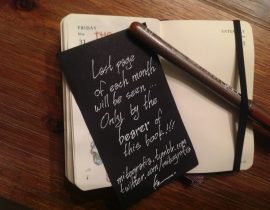 FRIDAY
31
Last page
of each month
will be seen...
Only by the
bearer of
this book!!!
mitografia.tumblr.com
twitter.com/mitografia